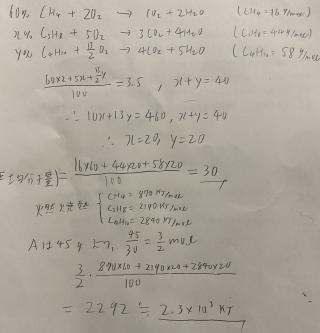 60% CH4 + 2O2 → CO2 + 2H2O (CH4 = 16 g/mol)
x% C3H8 + 5O2 → 3CO2 + 4H2O (C3H8 = 44 g/mol)
y% C4H10 + 13/2 O2 → 4CO2 + 5H2O (C4H10 = 58 g/mol)
(60×2 + 5x + 13/2 y)/100 = 3.5 , x+y = 40
∴ 10x+13y = 460 , x+y = 40
∴ x=20, y=20
(平均分子量) = (16×60 + 44×20 + 58×20)/100 = 30
CH4 = 890 KJ/mol
燃焼 C3H8 = 2190 KJ/mol
C4H10 = 2890 KJ/mol
Aは45gより, 45/30 = 3/2 mol
3/2 · (890×60 + 2190×20 + 2890×20)/100
= 2292 ≒ 2.3×10³ KJ